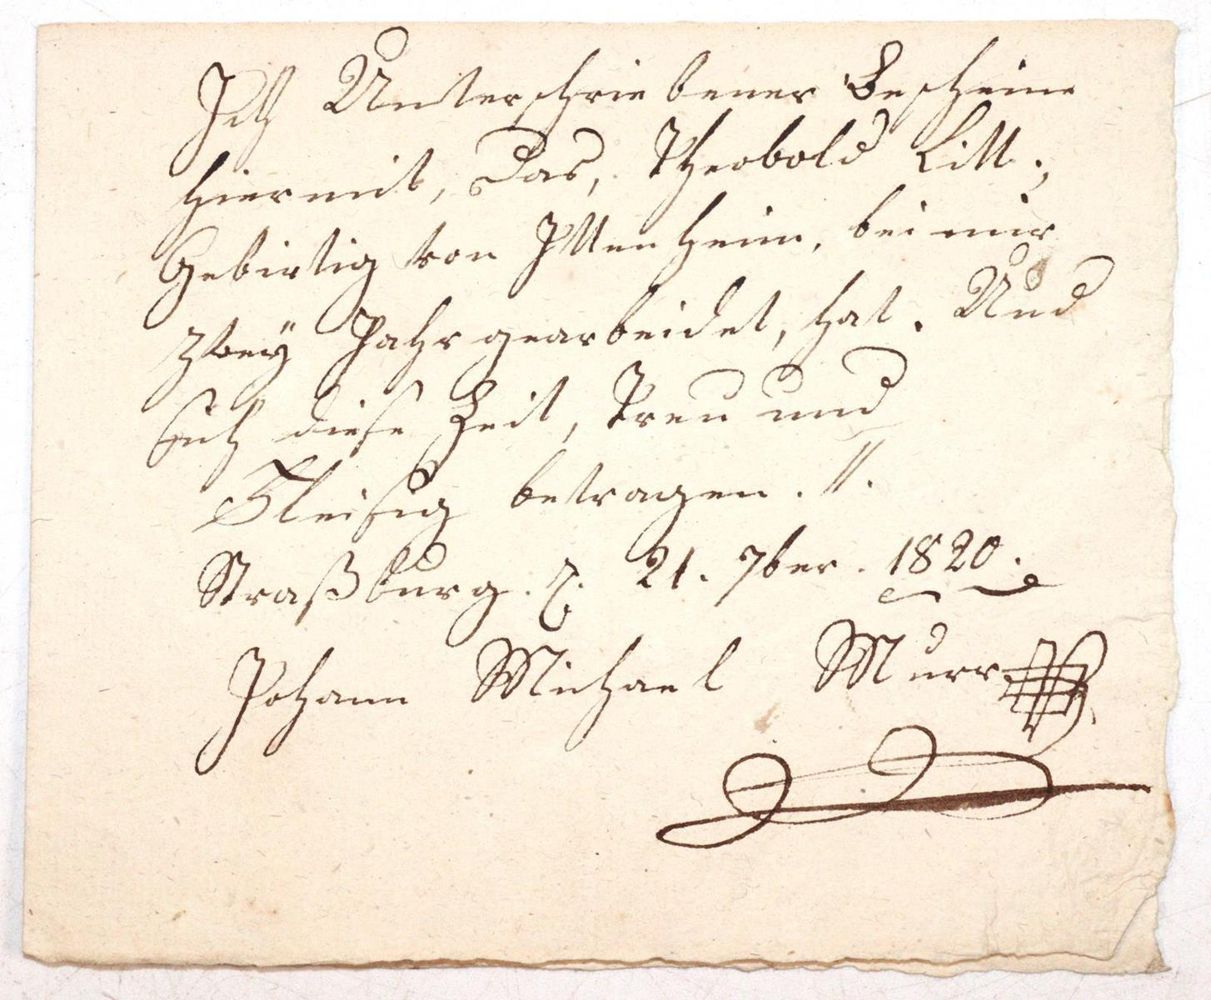 Ich Unterschriebener Bescheine
hiermit, das, Theobold Litt.,
Gebirtig von Ittenheim, bei mir
zwey Jahr gearbeidet, hat. Und
sich diese Zeit, Treu und
Fleisig betragen. //.
Straßburg. d. 21. 7ber. 1820.
Johann Michael Murr